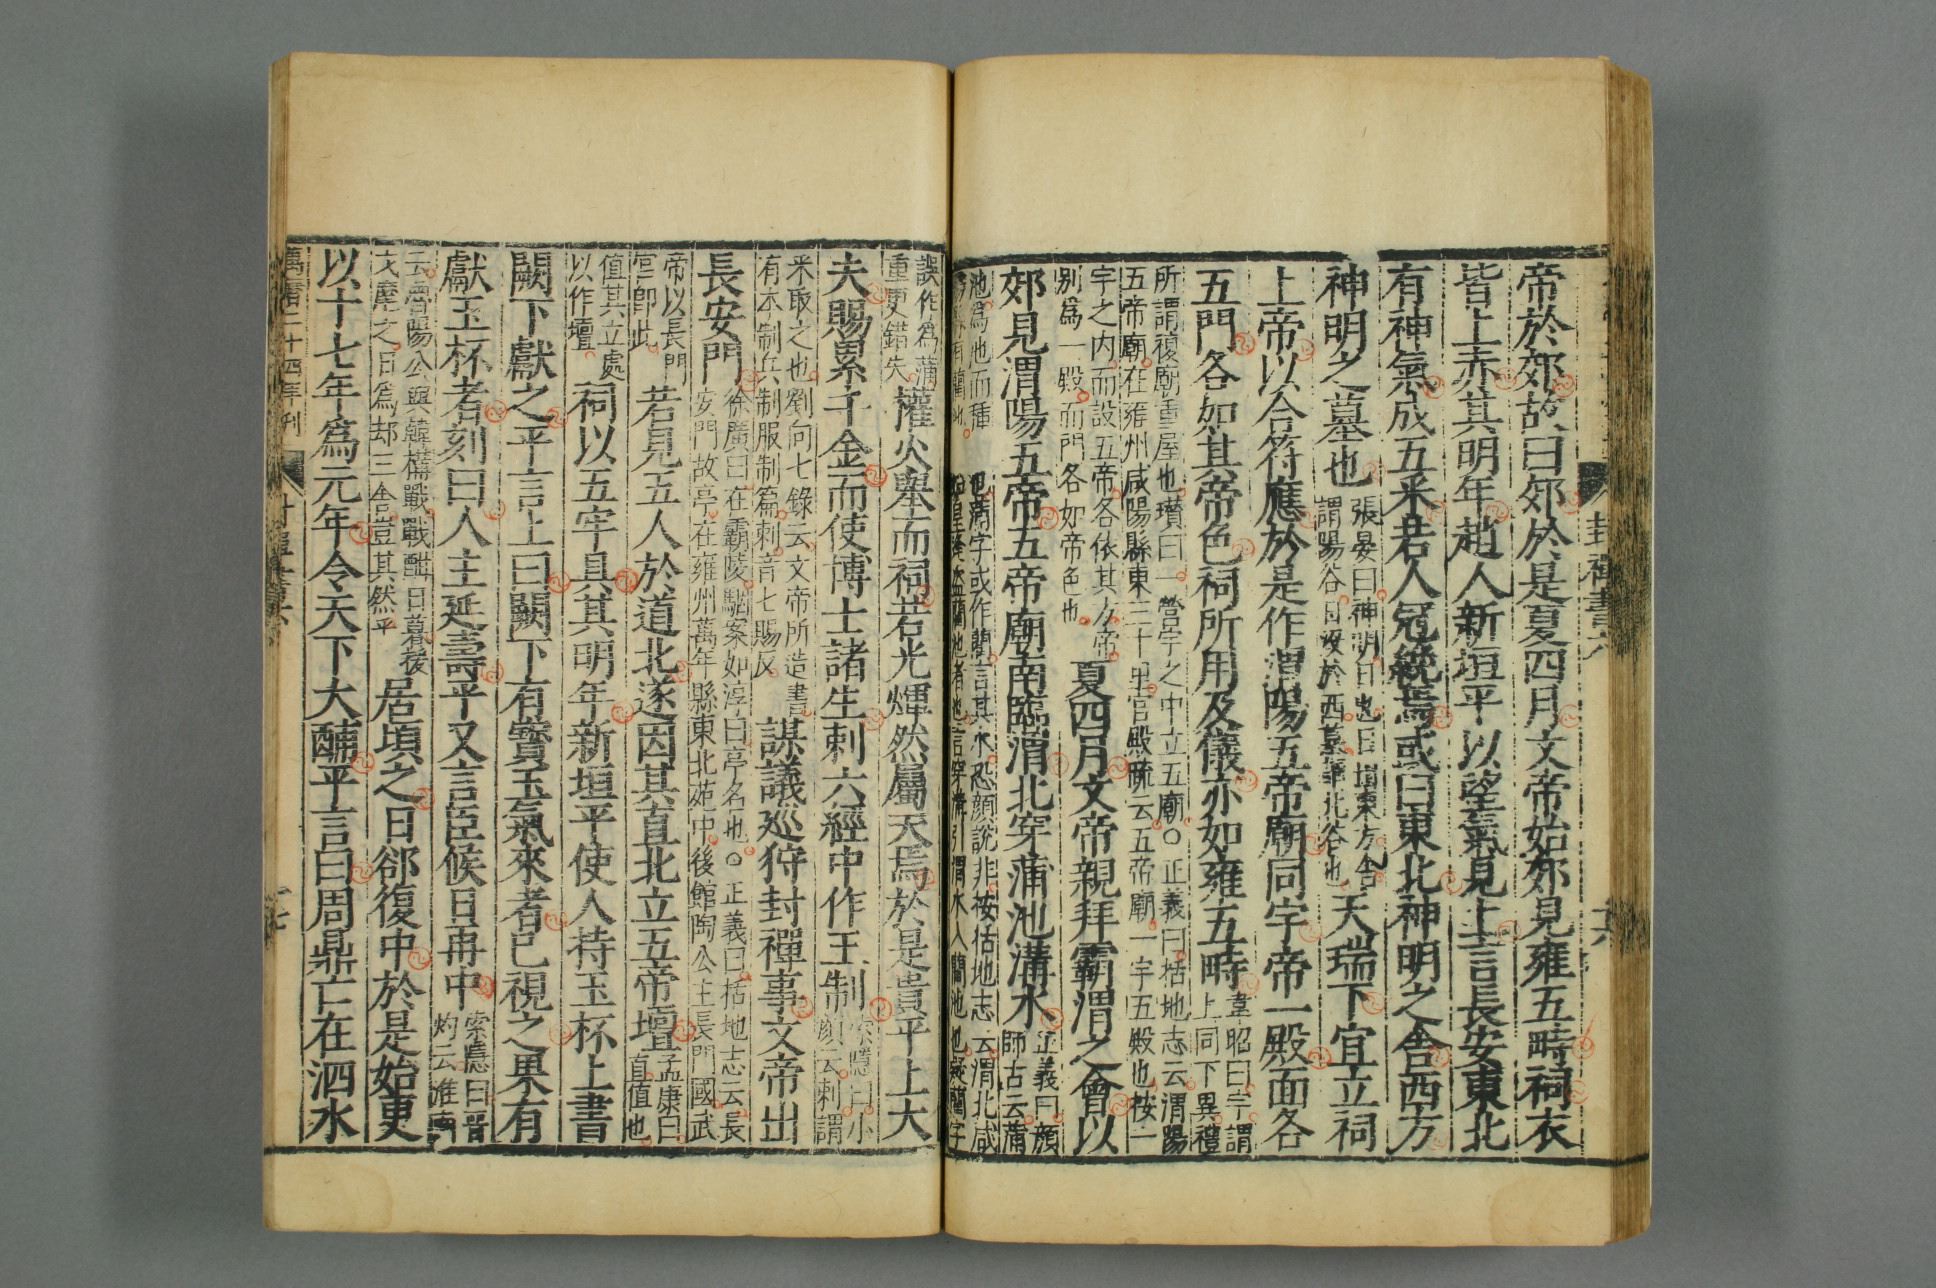 帝於郊故曰郊於是夏四月文帝始郊見雍五畤祠衣
皆上赤其明年趙人新垣平以望氣見上言長安東北
有神氣成五采若人冠絻焉或曰東北神明之舍西方
神明之墓也
張晏曰神明日也日東方舍
謂陽谷日沒於西墓北谷也
天瑞下宜立祠
上帝以合符應於是作渭陽五帝廟同宇帝一殿面各
五門各如其帝色祠所用及儀亦如雍五畤
韋昭曰宇謂
上同下異禮
所謂複廟重屋也瓚曰一營宇之中立五廟○正義曰括地志云渭陽
五帝廟在雍州咸陽縣東三十里宮殿疏云五帝廟一宇五殿也按一
宇之内而設五帝各依其方帝
别爲一殿而門各如帝色也
夏四月文帝親拜霸渭之會以
郊見渭陽五帝五帝廟南臨渭北穿蒲池溝水
正義曰顏
師古云蒲
池爲池而種蒲字或作蘭言其水恐顏說非按括地志云渭北咸
有蘭池始皇逢盜蘭池者也言穿溝引渭水入蘭池也疑蘭字
封禪書六
十六
誤作爲蒲
重更錯失
權火舉而祠若光煇然屬天焉於是貴平上大
夫賜累千金而使博士諸生刺六經中作王制
索隱曰小
顏云刺謂
采取之也劉向七錄云文帝所造書
有本制兵制服制篇刺音七賜反
謀議巡狩封禪事文帝出
長安門
徐廣曰在霸陵駰案如淳曰亭名也○正義曰括地志云長
安門故亭在雍州萬年縣東北苑中後館陶公主長門園武
帝以長門
宮即此
若見五人於道北遂因其直北立五帝壇
孟康曰
直值也
值其立處
以作壇
祠以五牢具其明年新垣平使人持玉杯上書
闕下獻之平言上曰闕下有寶玉氣來者已視之果有
獻玉杯者刻曰人主延壽平又言臣候日再中
索隱曰晉
灼云淮南
云魯陽公與韓構戰戰酣日暮援
戈麾之日爲却三舍豈其然乎
居頃之日郤復中於是始更
以十七年爲元年令天下大酺平言曰周鼎亡在泗水
萬曆二十四年刊
十七